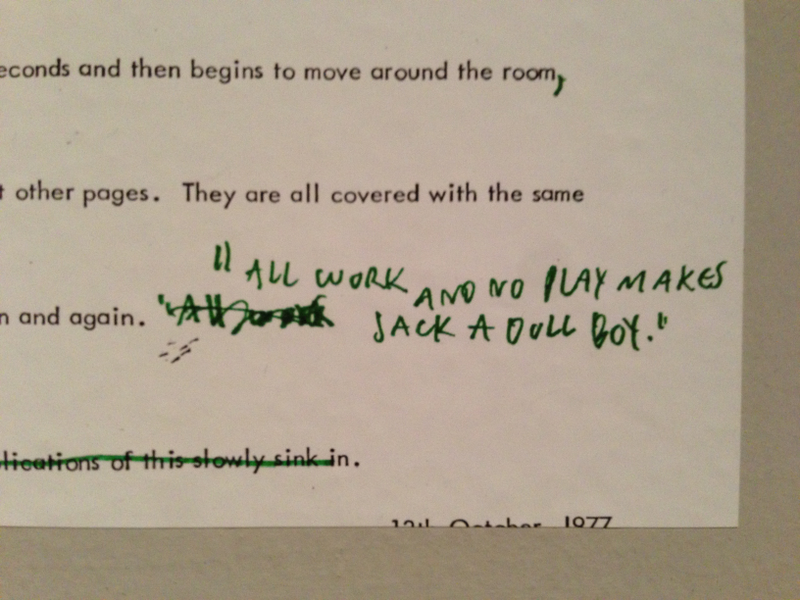 econds and then begins to move around the room,
t other pages. They are all covered with the same
" ALL WORK AND NO PLAY MAKES
n and again. "All work
JACK A DULL BOY."
lications of this slowly sink in.
October 1977